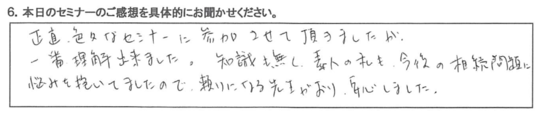 6. 本日のセミナーのご感想を具体的にお聞かせください。
正直、色々なセミナーに参加させて頂きましたが、
一番理解出来ました。知識も無く、素人の私も、今後の相続問題に
悩みを抱いてましたので、頼りになる先生がおり、安心しました。